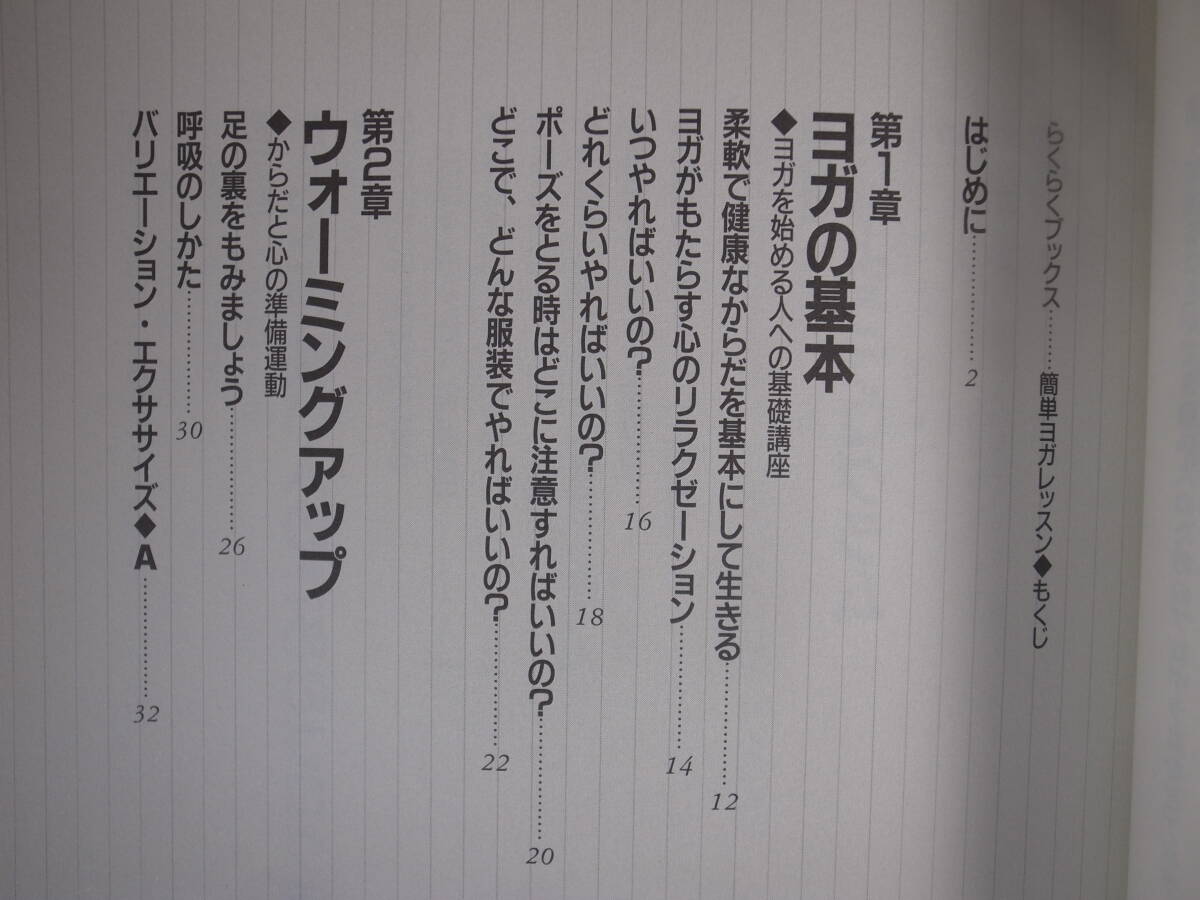 らくらくブックス………簡単ヨガレッスン◆もくじ
はじめに…………2
第1章
ヨガの基本
◆ヨガを始める人への基礎講座
柔軟で健康なからだを基本にして生きる…………12
ヨガがもたらす心のリラクゼーション…………14
いつやればいいの?…………16
どれくらいやればいいの?…………18
ポーズをとる時はどこに注意すればいいの?…………20
どこで、どんな服装でやればいいの?…………22
第2章
ウォーミングアップ
◆からだと心の準備運動
足の裏をもみましょう…………26
呼吸のしかた…………30
バリエーション・エクササイズ◆A…………32